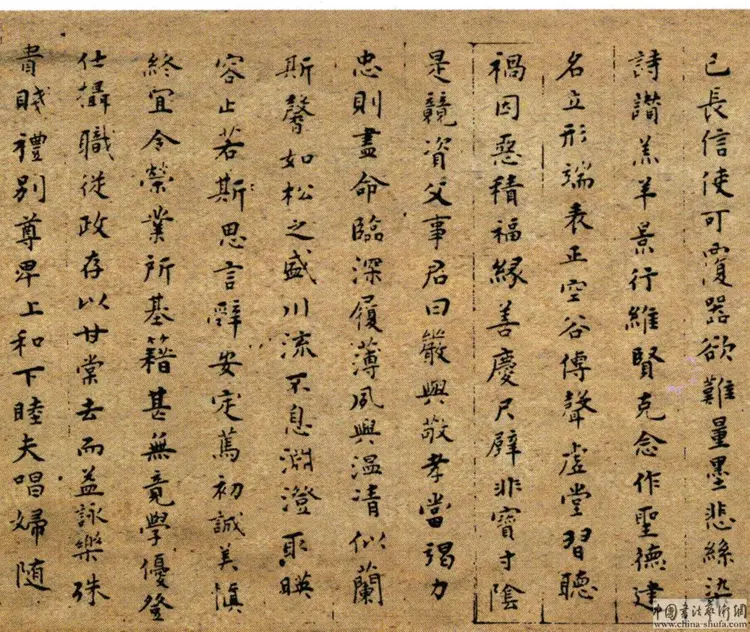 己長信使可覆器欲難量墨悲絲染
詩讃羔羊景行維賢克念作聖德建
名立形端表正空谷傳聲虛堂習聽
禍因惡積福緣善慶尺璧非寶寸陰
是競資父事君曰嚴與敬孝當竭力
忠則盡命臨深履薄夙興温凊似蘭
斯馨如松之盛川流不息淵澄取暎
容止若斯思言辭安定篤初誠美慎
終宜令榮業所基籍甚無竟學優登
仕攝職從政存以甘棠去而益詠樂殊
貴賤禮別尊卑上和下睦夫唱婦隨
中国書法藝術網
www.china-shufa.com